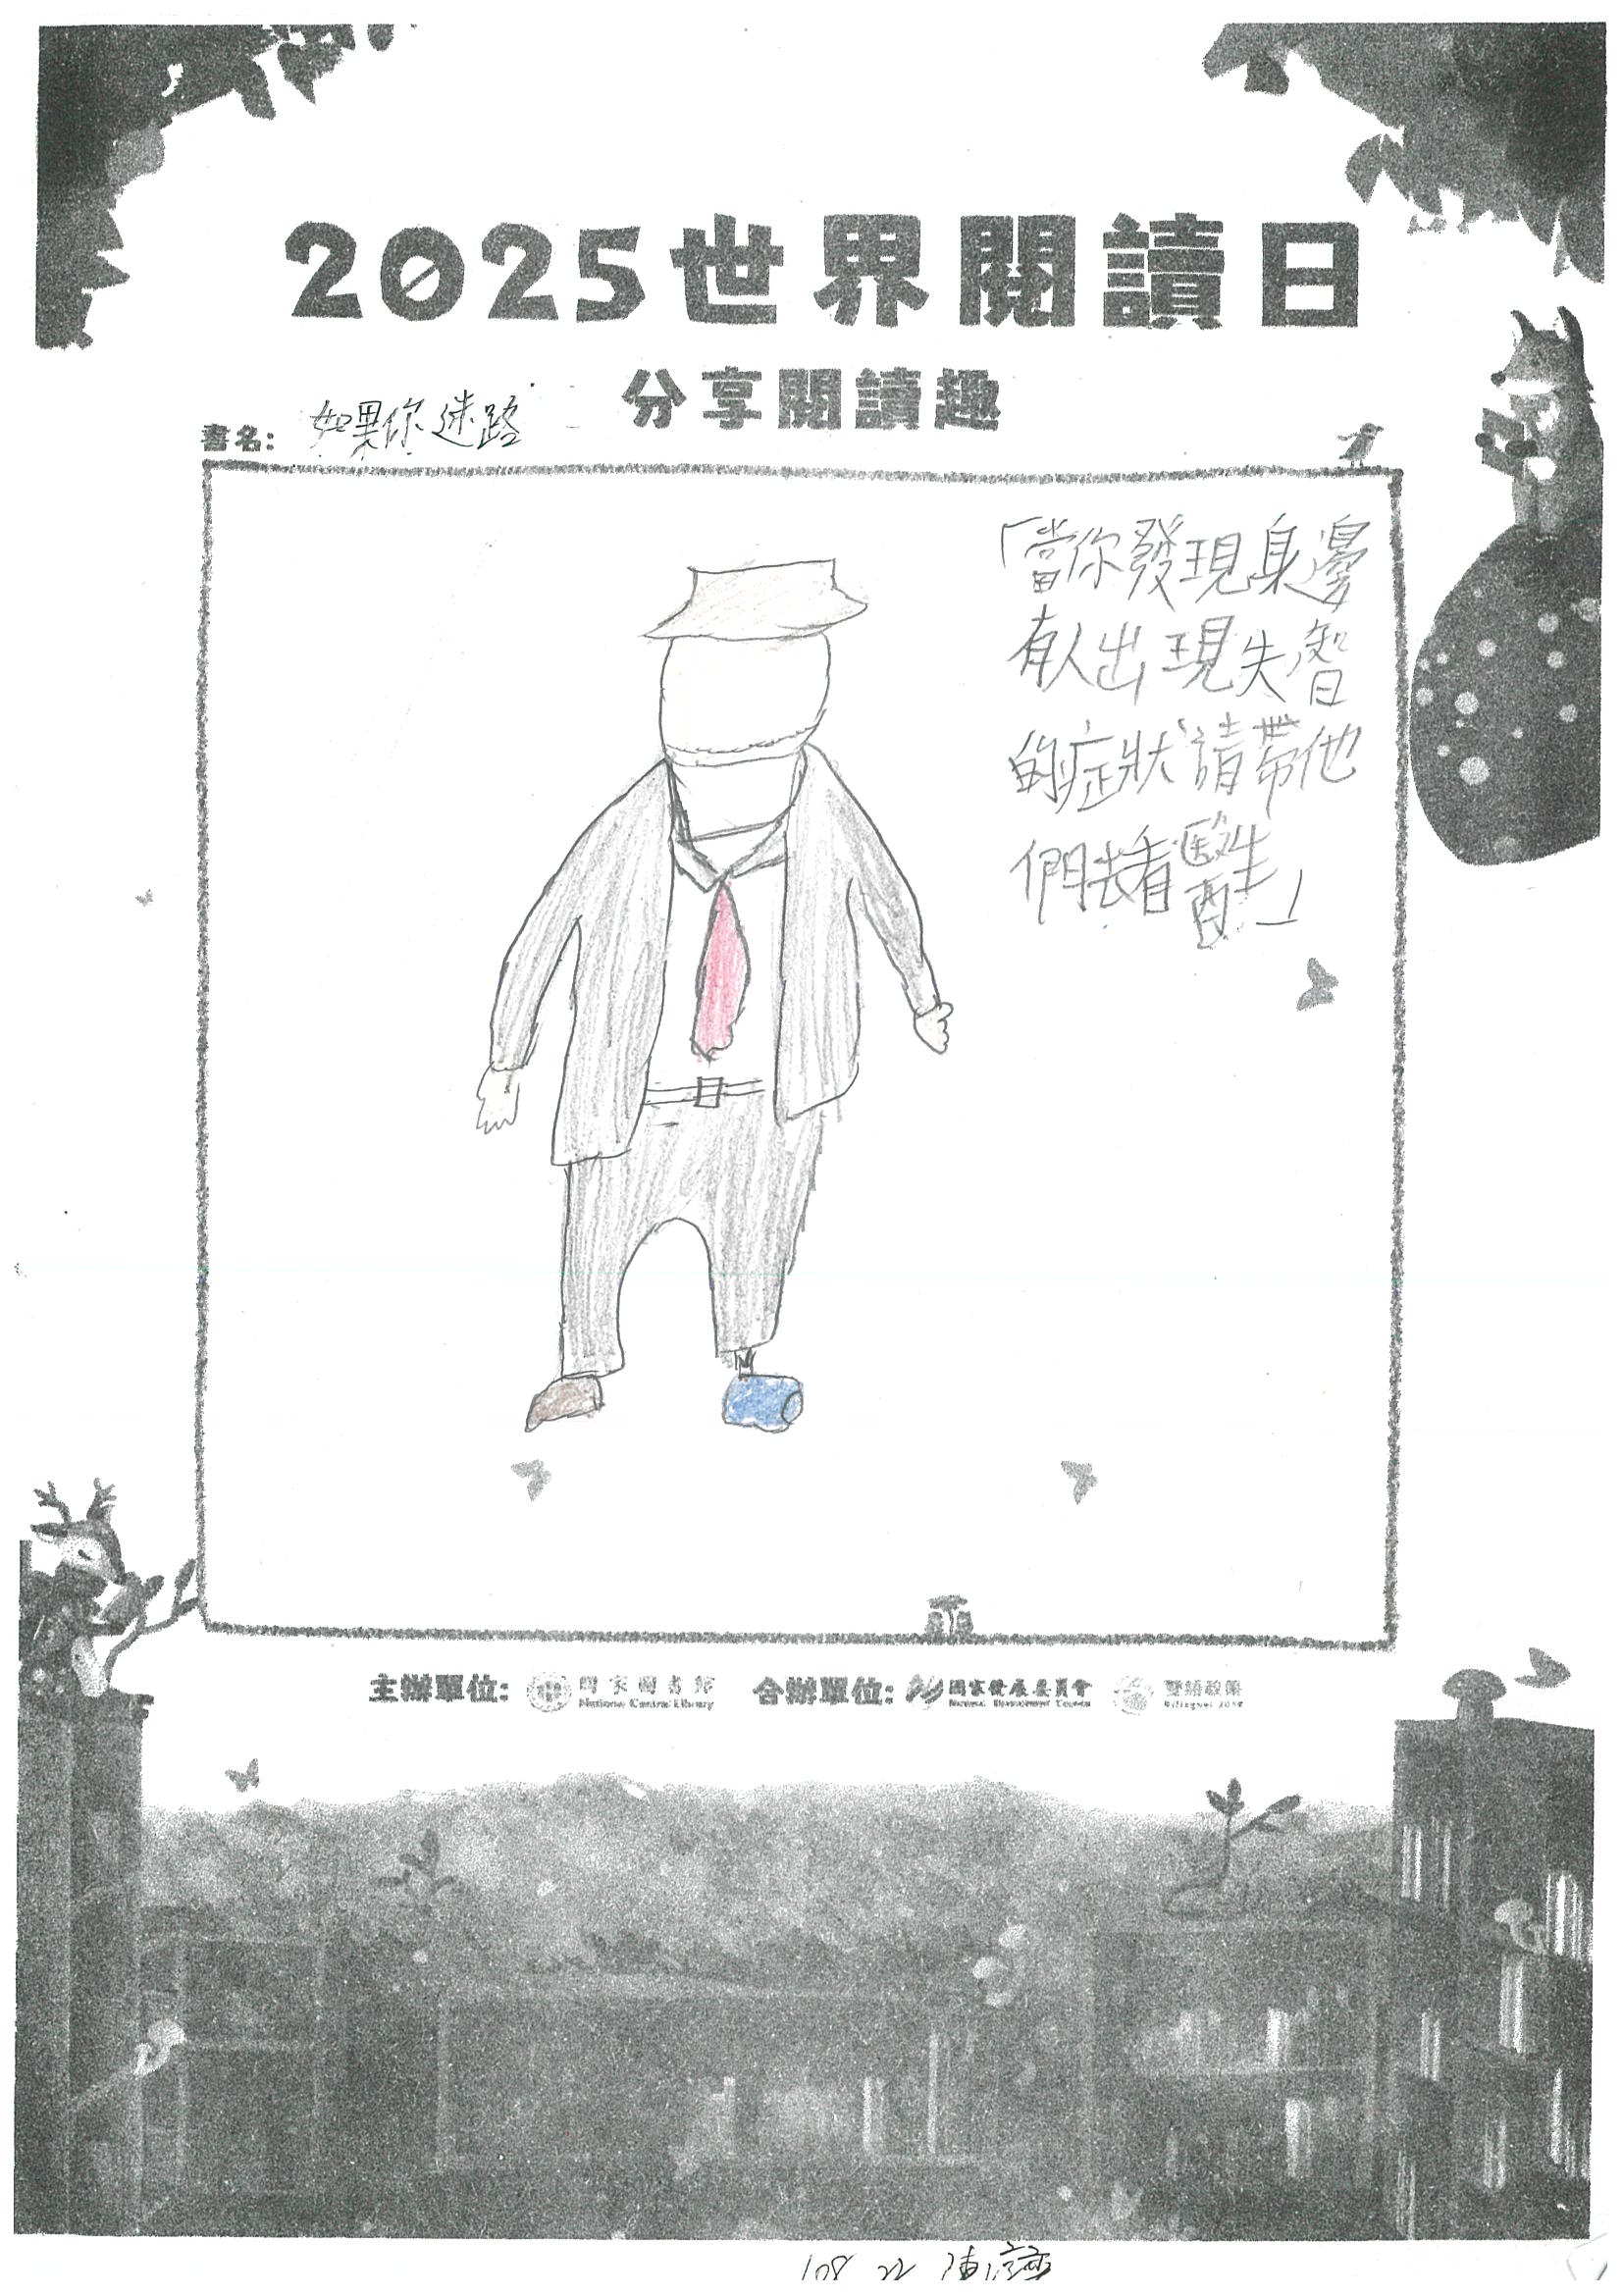 2025世界閱讀日
分享閱讀趣
書名: 如果你迷路
「當你發現身邊
有人出現失智
的症狀請帶他
們去看醫生」
主辦單位: 國家圖書館 National Central Library 合辦單位: 國家發展委員會 National Development Council 雙語政策 Bilingual 2030
108 22 陳